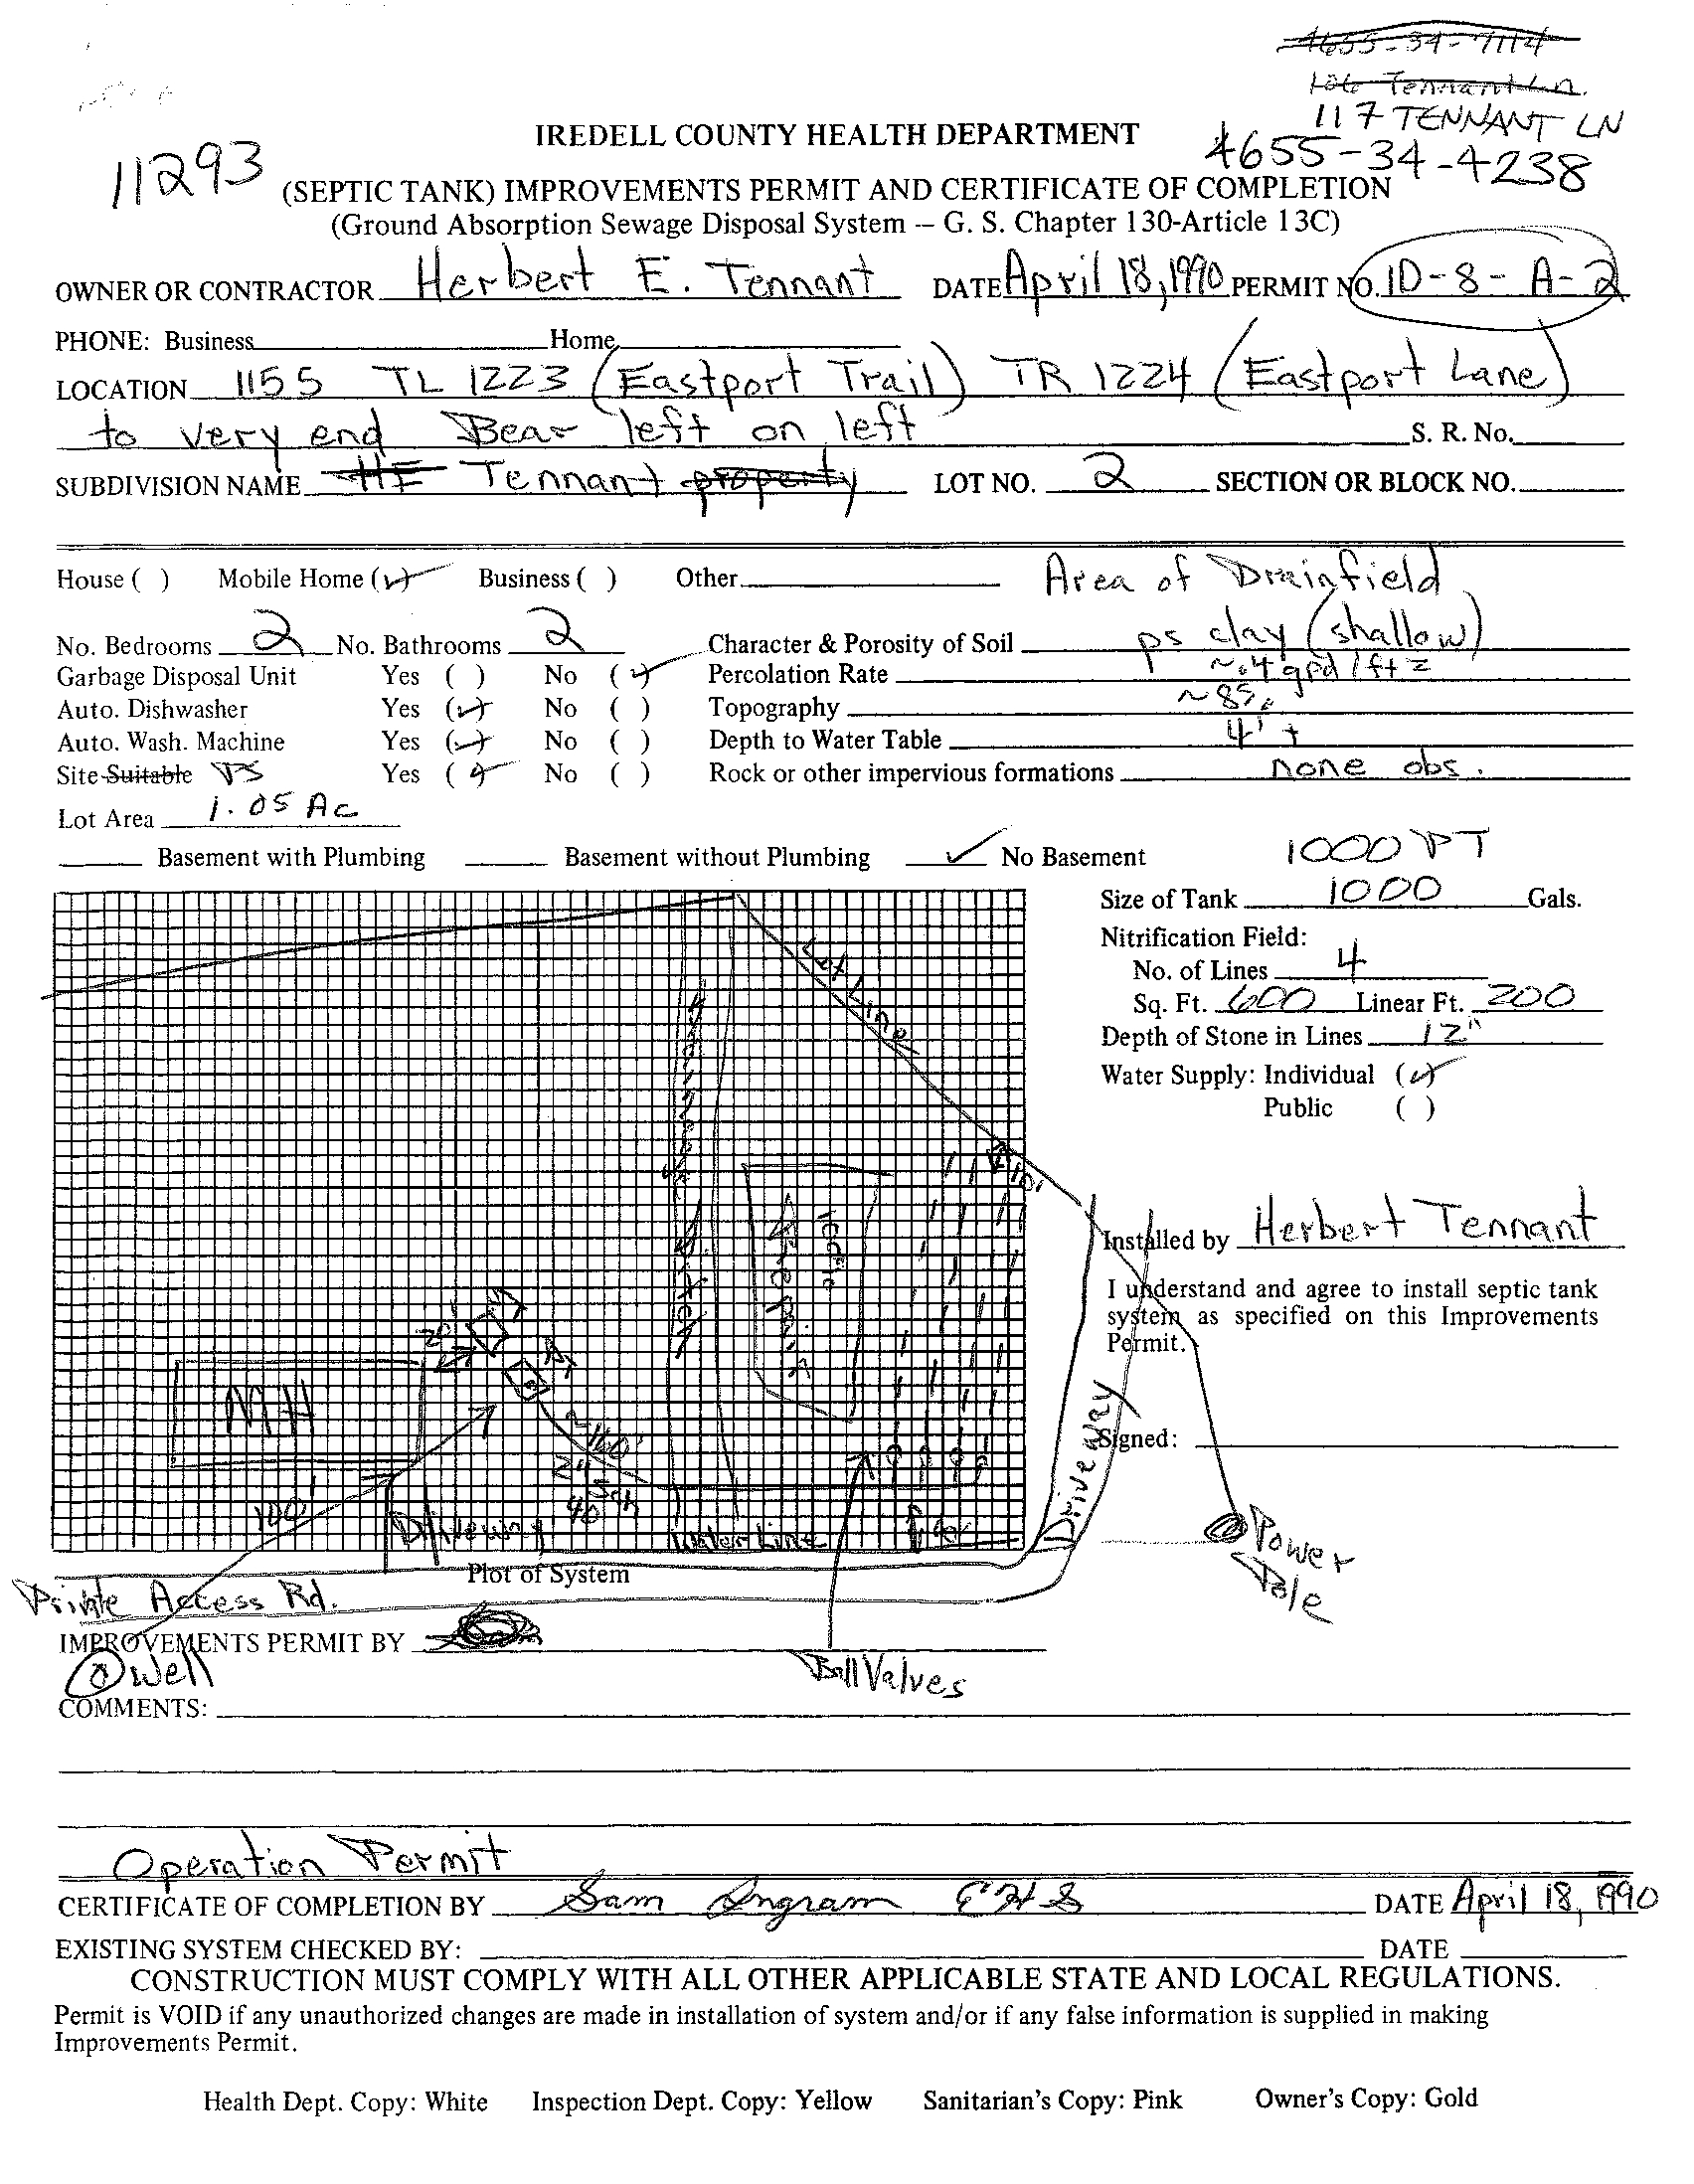 4655-34-7114
106 Tennant Ln.
117 TENNANT LN
4655-34-4238
11293
IREDELL COUNTY HEALTH DEPARTMENT
(SEPTIC TANK) IMPROVEMENTS PERMIT AND CERTIFICATE OF COMPLETION
(Ground Absorption Sewage Disposal System – G. S. Chapter 130-Article 13C)
OWNER OR CONTRACTOR Herbert E. Tennant DATE April 18, 1990 PERMIT NO. ID-8-A-2
PHONE: Business Home
LOCATION 1155 TL 1223 (Eastport Trail) TR 1224 (Eastport Lane)
to very end Bear left on left S. R. No.
SUBDIVISION NAME HE Tennant property LOT NO. 2 SECTION OR BLOCK NO.
House ( ) Mobile Home (✓) Business ( ) Other Area of Drainfield
No. Bedrooms 2 No. Bathrooms 2 Character & Porosity of Soil ps clay (shallow)
Garbage Disposal Unit Yes ( ) No (✓) Percolation Rate ~.4 gpd/ft2
Auto. Dishwasher Yes (✓) No ( ) Topography ~8%
Auto. Wash. Machine Yes (✓) No ( ) Depth to Water Table 4'+
Site Suitable PS Yes (✓) No ( ) Rock or other impervious formations none obs.
Lot Area 1.05 Ac
Basement with Plumbing Basement without Plumbing ✓ No Basement 1000 PT
Size of Tank 1000 Gals.
Nitrification Field:
No. of Lines 4
Sq. Ft. 600 Linear Ft. 200
Depth of Stone in Lines 12"
Water Supply: Individual (✓)
Public ( )
Lot Line
Drainage Ditch
10'
Installed by Herbert Tennant
I understand and agree to install septic tank
system as specified on this Improvements
Permit.
Signed:
20'
ST
PT
MH
~160'
2" Sch
40
100'
Driveway
Water Line
Driveway
Power
Pole
Plot of System
Private Access Rd.
IMPROVEMENTS PERMIT BY
Well
Ball Valves
COMMENTS:
Operation Permit
CERTIFICATE OF COMPLETION BY Sam Ingram EHS DATE April 18, 1990
EXISTING SYSTEM CHECKED BY: DATE
CONSTRUCTION MUST COMPLY WITH ALL OTHER APPLICABLE STATE AND LOCAL REGULATIONS.
Permit is VOID if any unauthorized changes are made in installation of system and/or if any false information is supplied in making
Improvements Permit.
Health Dept. Copy: White Inspection Dept. Copy: Yellow Sanitarian's Copy: Pink Owner's Copy: Gold